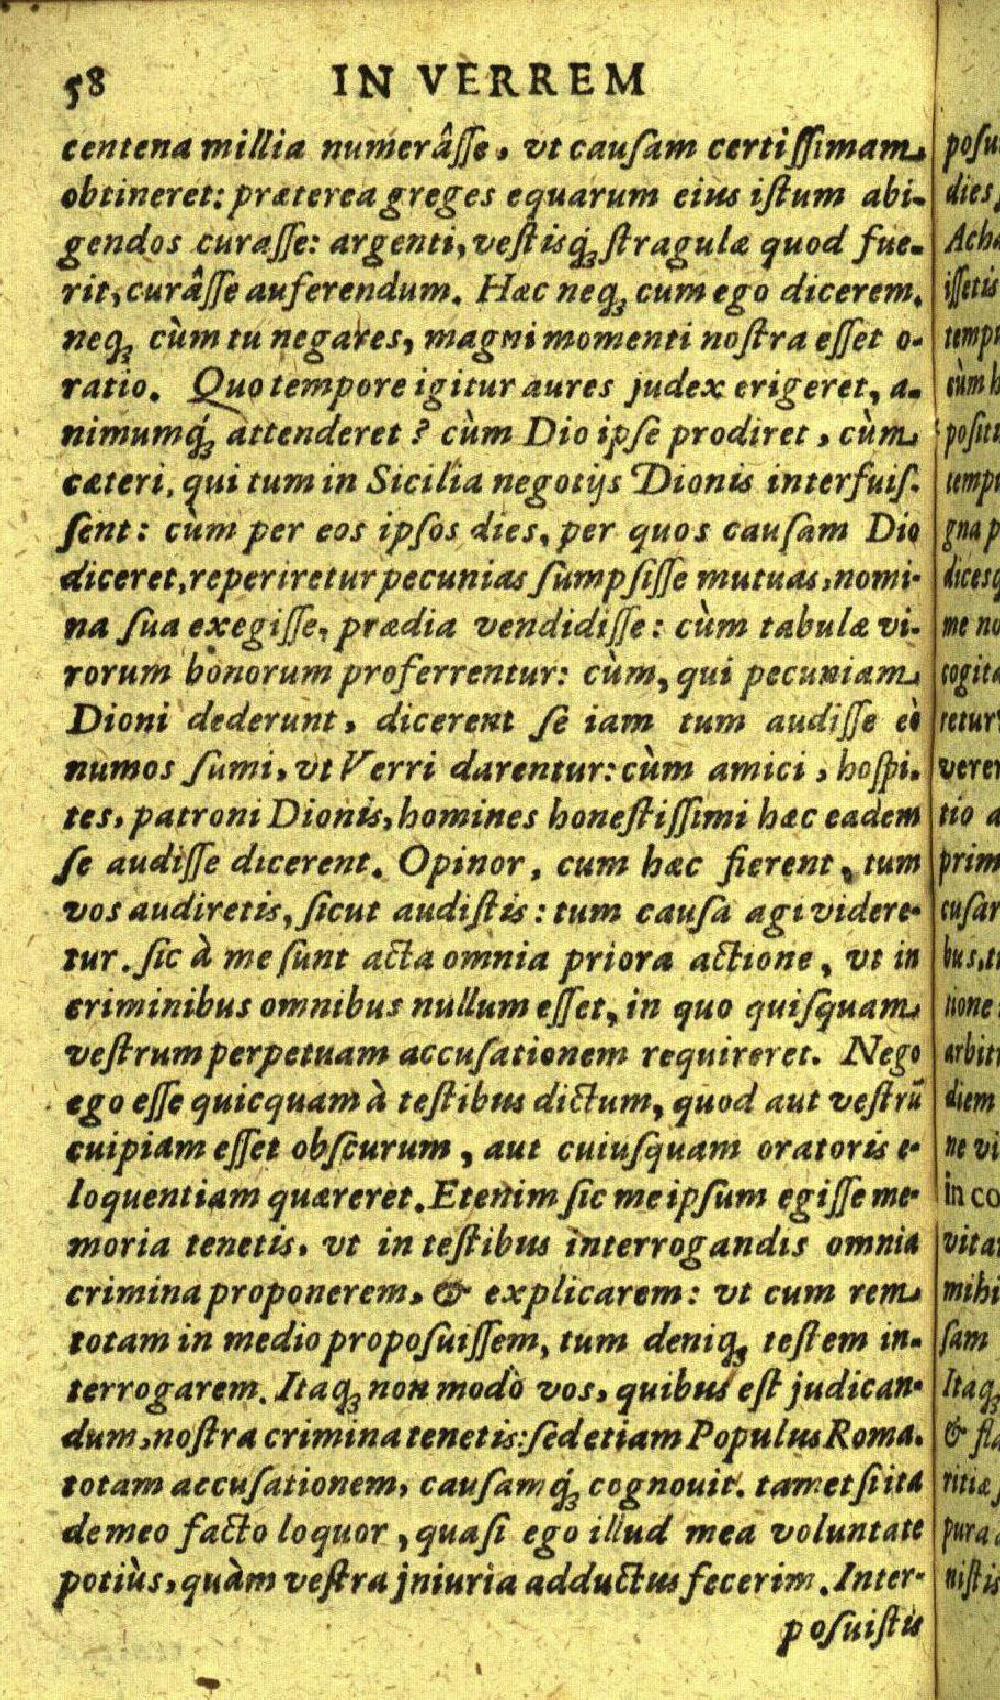 58 IN VERREM
centena millia numerâſſe, vt cauſam certiſſimam
obtineret: præterea greges equarum eius iſtum abi-
gendos curaſſe: argenti, veſtisq́; ſtragulæ quod fue-
rit, curâſſe auferendum. Hæc neq; cum ego dicerem,
neq; cùm tu negares, magni momenti noſtra eſſet o-
ratio. Quo tempore igitur aures judex erigeret, a-
nimumq́; attenderet? cùm Dio ipſe prodiret, cùm
cæteri, qui tum in Sicilia negotijs Dionis interfuiſ-
ſent: cùm per eos ipſos dies, per quos cauſam Dio
diceret, reperiretur pecunias ſumpſiſſe mutuas, nomi-
na ſua exegiſſe, prædia vendidiſſe: cùm tabulæ vi-
rorum bonorum proferrentur: cùm, qui pecuniam
Dioni dederunt, dicerent ſe iam tum audiſſe eò
numos ſumi, vt Verri darentur: cùm amici, hoſpi-
tes, patroni Dionis, homines honeſtiſſimi hæc eadem
ſe audiſſe dicerent. Opinor, cum hæc fierent, tum
vos audiretis, ſicut audiſtis: tum cauſa agi videre-
tur. ſic à me ſunt acta omnia priora actione, vt in
criminibus omnibus nullum eſſet, in quo quiſquam
veſtrum perpetuam accuſationem requireret. Nego
ego eſſe quicquam à teſtibus dictum, quod aut veſtrū
cuipiam eſſet obſcurum, aut cuiuſquam oratoris e-
loquentiam quæreret. Etenim ſic me ipſum egiſſe me-
moria tenetis, vt in teſtibus interrogandis omnia
crimina proponerem, & explicarem: vt cum rem
totam in medio propoſuiſſem, tum deniq; teſtem in-
terrogarem. Itaq; non modò vos, quibus eſt judican-
dum, noſtra crimina tenetis: ſed etiam Populus Roma.
totam accuſationem, cauſamq́; cognouit. tametſi ita
de meo facto loquor, quaſi ego illud mea voluntate
potiùs, quàm veſtra jniuria adductus fecerim. Inter-
poſuiſtis